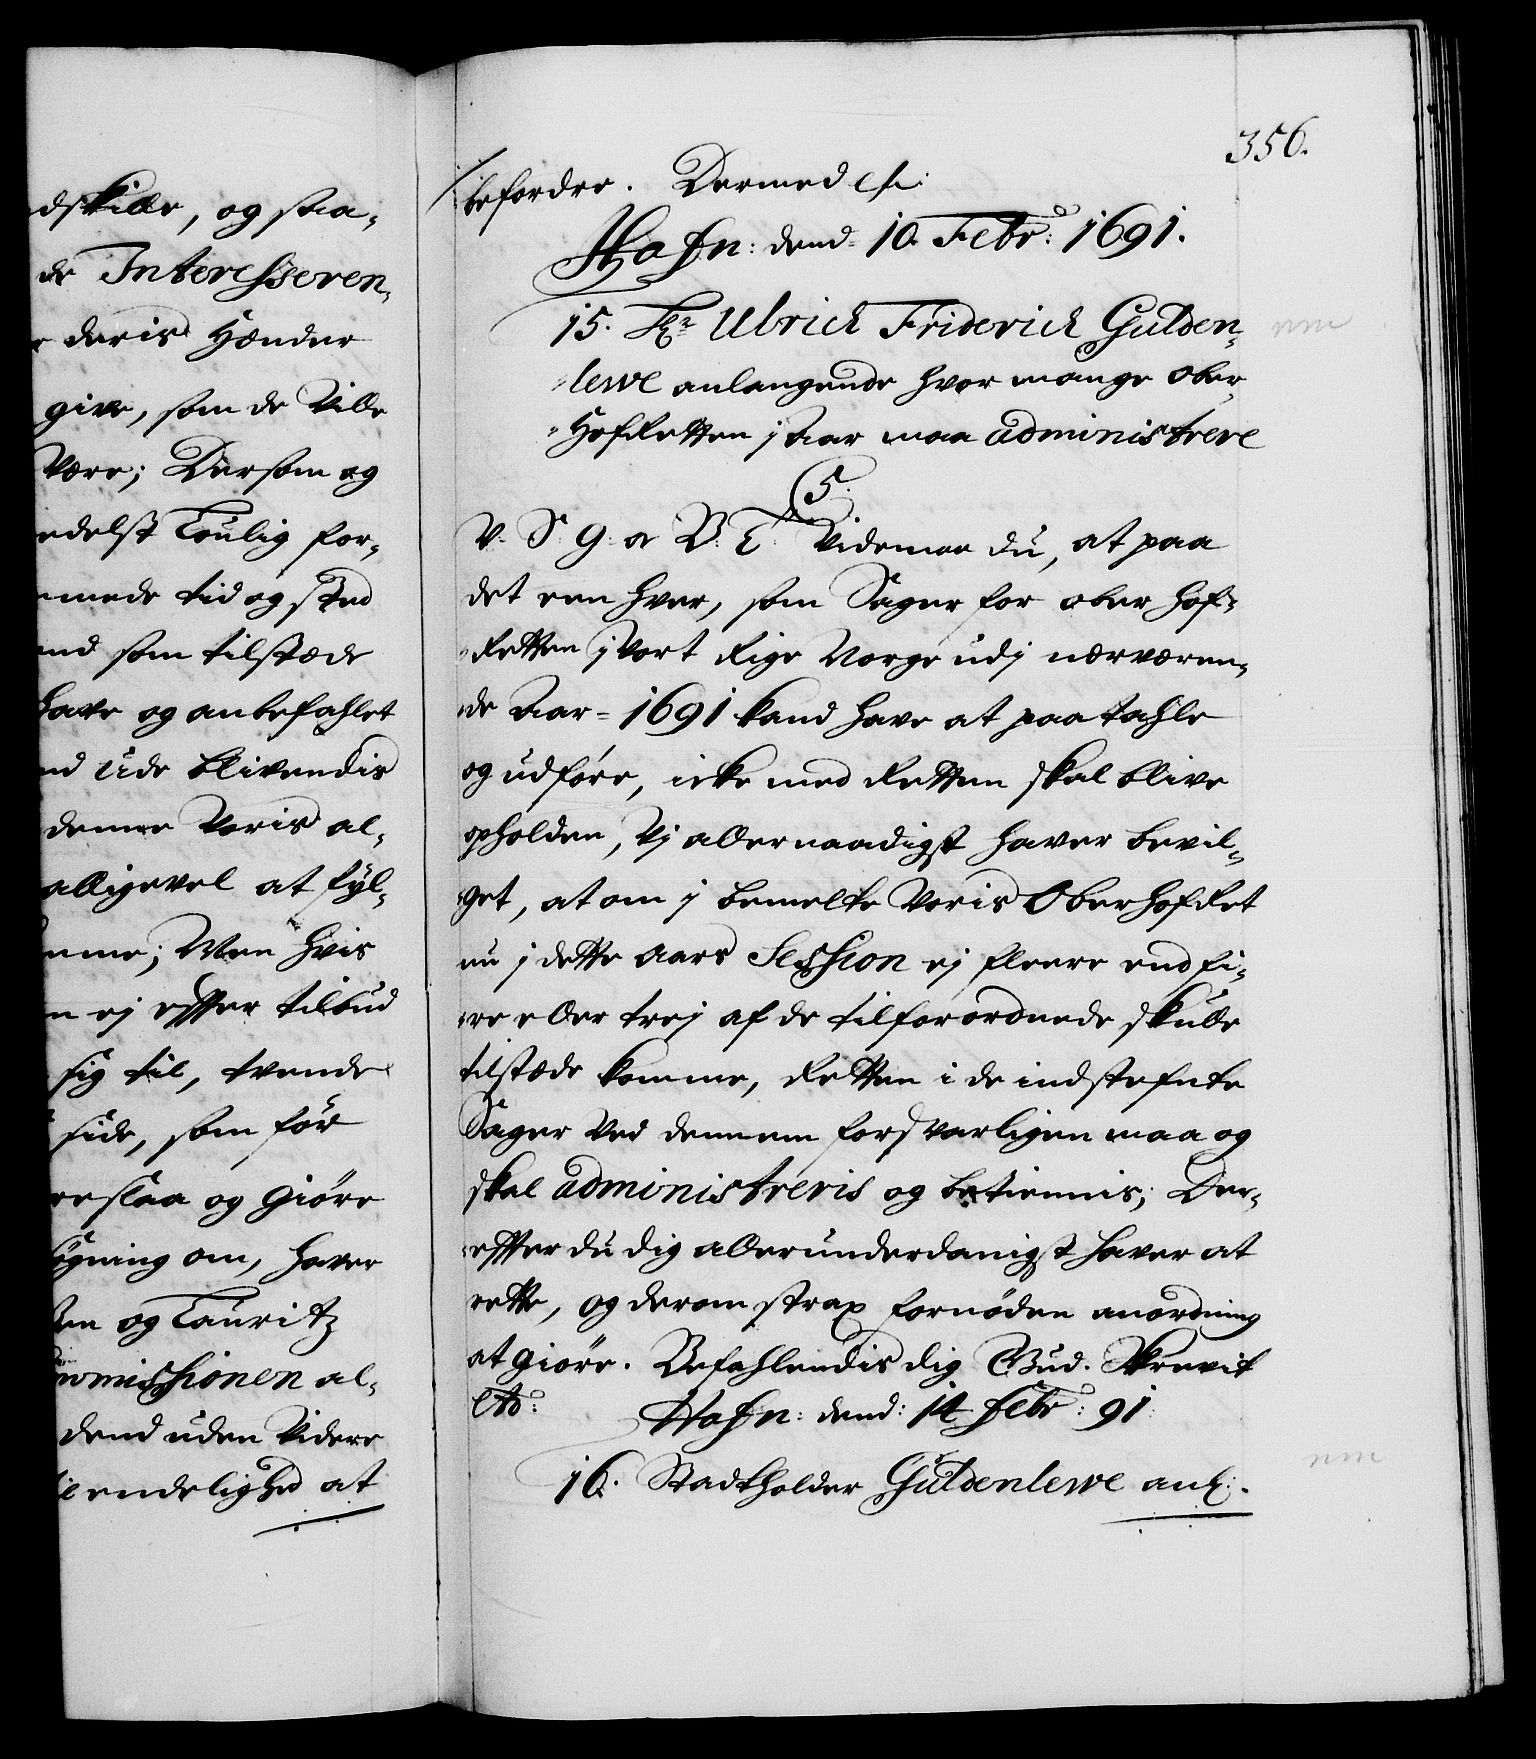 dskille, og stra-
de Interesseren-
deris Hænder
give, som de Ville
Være; Dersom og
edelst Loulig for-
mede tid og sted
end som tilstæde
have og anbefahlet
nd ude blivendis
denne Voris al-
alligevel at fyl-
mme; Men hvis
n ej effter tilbud
sig til, tvende
side, som før
reslaa og giøre
ligning om, haver
sen og Lauritz
ommissionen al-
dend uden Videre
endelighed at
356.
befordre. Dermed etc:
Hafn: dend 10. Febr: 1691.
15. Hr. Ulrich Friderich Gulden-
lewe anlangende hvor mange Ober-
Hofretten j aar maa administrere
5.
V. S. G. a V. T. Vide maa du, at paa
det een hver, som Sager for ober hof-
retten j Vort Rige Norge udj nærværen-
de Aar 1691 kand have at paatahle
og udføre, icke med Retten skal blive
opholden, Vj allernaadigst haver bevil-
get, at om j bemelte Voris Oberhofret
nu j dette aars Session ej fleere end fi-
re eller trej af de tilforordnede skulle
tilstæde komme, Retten i de indstefnte
Sager Ved dennem forsvarligen maa og
skal administreris og betiennis; Der-
effter du dig allerunderdanigst haver at
rette, og derom strax fornøden anordning
at giøre. Befahlendis dig Gud. Skrevit
etc: Hafn: dend: 14 Febr: 91
16. Stadtholder Guldenlewe anl: